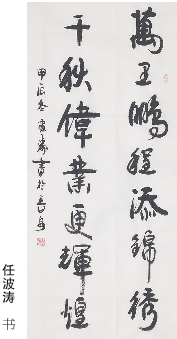 萬里鵬程添錦綉
千秋偉業更輝煌
甲辰冬波濤書於青島
任波涛 书